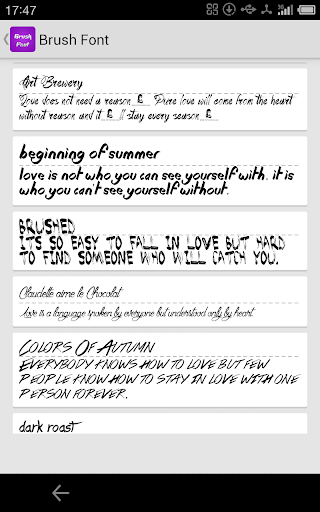 17:47
Brush Font
Brush Font
Art Brewery
Love does not need a reason Pure love will come from the heart
without reason and it ll stay every season
beginning of summer
love is not who you can see yourself with. it is
who you can't see yourself without.
BRUSHED
ITS SO EASY TO FALL IN LOVE BUT HARD
TO FIND SOMEONE WHO WILL CATCH YOU.
Claudette aime le Chocolat
Love is a language spoken by everyone but understood only by heart
COLORS OF AUTUMN
EVERYBODY KNOWS HOW TO LOVE BUT FEW
PEOPLE KNOW HOW TO STAY IN LOVE WITH ONE
PERSON FOREVER.
dark roast